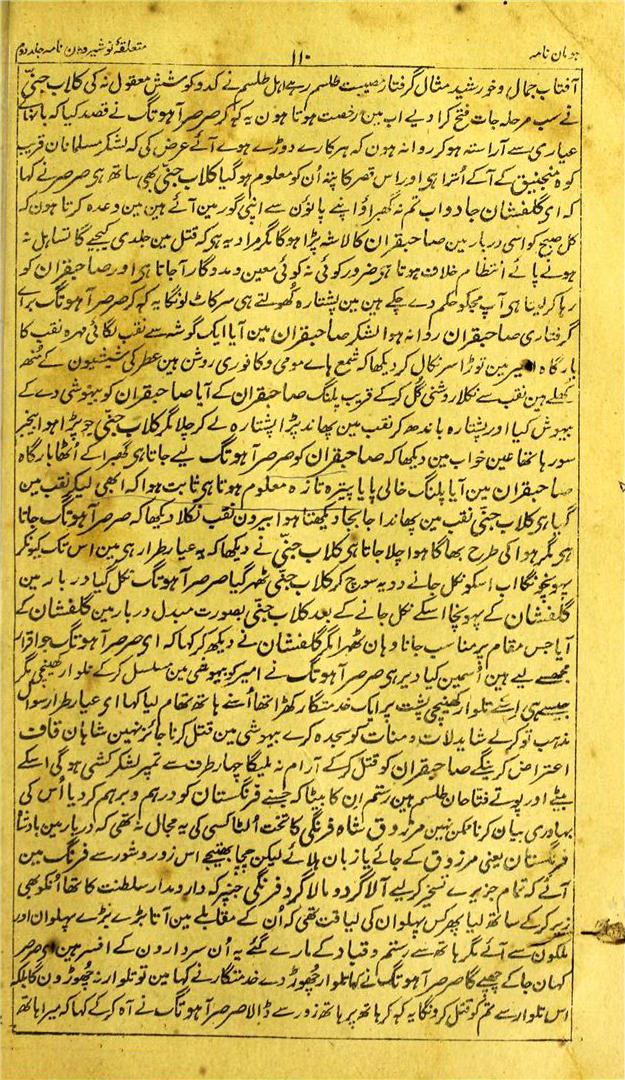 ہومان نامہ ۱۱۰ متعلقۂ نوشیروان نامہ جلد دوم
آفتاب جمال و خورشید مثال گرفتار مصیبت طلسم رہے اہل طلسم نے کد و کوشش معقول نہ کی کلاب جنّی
نے سب مرحلہ جات فتح کرا دیے اب مین رخصت ہوتا ہون یہ کہہ کر صرصر آہوتگ نے قصد کیا کہ
عیاری سے آراستہ ہو کر روانہ ہون کہ ہرکارے دوڑے ہوے آئے عرض کی کہ لشکر مسلمانان قریب
کوہ منجنیق کے آکے اُترا ہی اور اس قصر کا پتہ اُن کو معلوم ہو گیا کلاب جنّی بھی ساتھ ہی صرصر نے کہا
کہ ای گلفشان جادو اب تم نہ گھبراؤ اپنے پانون سے اپنی گور مین آئے ہین مین وعدہ کرتا ہون کہ
کل صبح کو اسی دربار مین صاحبقران کا لاشہ پڑا ہوگا مگر مراد یہ ہو کہ قتل مین جلدی کیجیے گا تساہل نہ
ہونے پائے انتظام خلاف ہوتا ہی ضرور کوئی نہ کوئی معین و مددگار آجاتا ہی اور صاحبقران کو
رہا کر لیتا ہی آپ مجکو حکم دے چکے ہین مین پشتارہ کھولتے ہی سر کاٹ لونگا یہ کہہ کر صرصر آہوتگ براے
گرفتاری صاحبقران روانہ ہوا لشکر صاحبقران مین آیا ایک گوشہ سے نقب لگائی مہرہ نقب کا
بارگاہ امیر مین توڑا سر نکال کر دیکھا کہ شمع ہاے مومی و کافوری روشن ہین عطر کی شیشیون کے منھ
کھلے ہین نقب سے نکلا روشنی گل کر کے قریب پلنگ صاحبقران کے آیا صاحبقران کو بیہوشی دے کے
بیہوش کیا اور پشتارہ باندھ کر نقب مین پھاند پڑا پشتارہ لے کر چلا مگر کلاب جنّی جو پڑا ہوا بیخبر
سو رہا تھا عین خواب مین دیکھا کہ صاحبقران کو صرصر آہوتگ لیے جاتا ہی گھبرا کے اُٹھا بارگاہ
صاحبقران مین آیا پلنگ خالی پایا پیترہ تازہ معلوم ہوتا ہی ثابت ہوا کہ ابھی لیکر نقب مین
گیا ہی کلاب جنّی نقب مین پھاندا جا بجا دیکھتا ہوا بیرون نقب نکلا دیکھا کہ صرصر آہوتگ جاتا
ہی مگر ہوا کی طرح بھاگا ہوا چلا جاتا ہی کلاب جنّی نے دیکھا کہ یہ عیار طرار ہی مین اس تک کیونکر
پہونچونگا اب اسکو نکل جانے دو یہ سوچ کر کلاب جنّی ٹھہر گیا صرصر آہوتگ نکل گیا دربار مین
گلفشان کے پہونچا اسکے نکل جانے کے بعد کلاب جنّی بصورت مبدل دربار مین گلفشان کے
آیا جس مقام پر مناسب جانا وہان ٹھہرا مگر گلفشان نے دیکھ کر کہا کہ ای صرصر آہوتگ جو اقرار
مجھسے لیے ہین اسمین کیا دیر ہی صرصر آہوتگ نے امیر کو بیہوشی مین مسلسل کر کے تلوار کھینچی مگر
جیسے ہی اِسنے تلوار کھینچی پشت پر ایک خدمتگار کھڑا تھا اُسنے ہاتھ تھام لیا کہا ای عیار طرار سوال
مذہب تو کرلے شاید لات و منات کو سجدہ کرے بیہوشی مین قتل کرنا جائز نہین شاہان قاف
اعتراض کرینگے صاحبقران کو قتل کر کے آرام نہ ملیگا چہار طرف سے تمپر لشکر کشی ہو گی اسکے
بیٹے اور پوتے فتاحان طلسم ہین رستم ان کا بیٹا کہ جسنے فرنگستان کو درہم و برہم کر دیا اُس کی
بہادری بیان کرنا ممکن نہین مرزوق شاہ فرنگی کا تخت اُلٹا کسی کی یہ مجال نہ تھی کہ دربار مین بادشاہ
فرنگستان یعنی مرزوق کے جائے یا زبان ہلائے لیکن چچا بھتیجے اس زور و شور سے فرنگ مین
آئے کہ تمام جزیرے تسخیر کر لیے آلا گرد و مالا گرد فرنگی جنپر کہ دار و مدار سلطنت کا تھا اُنکو بھی
زیر کر کے ساتھ لیا پھر کس پہلوان کی لیاقت تھی کہ اُن کے مقابلے مین آتا بڑے بڑے پہلوان اور
ملکون سے آئے مگر ہاتھ سے رستم و قباد کے مارے گئے یہ اُن سردارون کے افسر ہین ای صرصر
کہان جا کے چھپے گا صرصر آہوتگ نے کہا تلوار چھوڑ دے خدمتگار نے کہا مین تو تلوار نہ چھوڑونگا بلکہ
اس تلوار سے تم کو قتل کرونگا یہ کہہ کر ہاتھ پر ہاتھ زور سے ڈالا صرصر آہوتگ نے آہ کر کے کہا کہ میرا ہاتھ